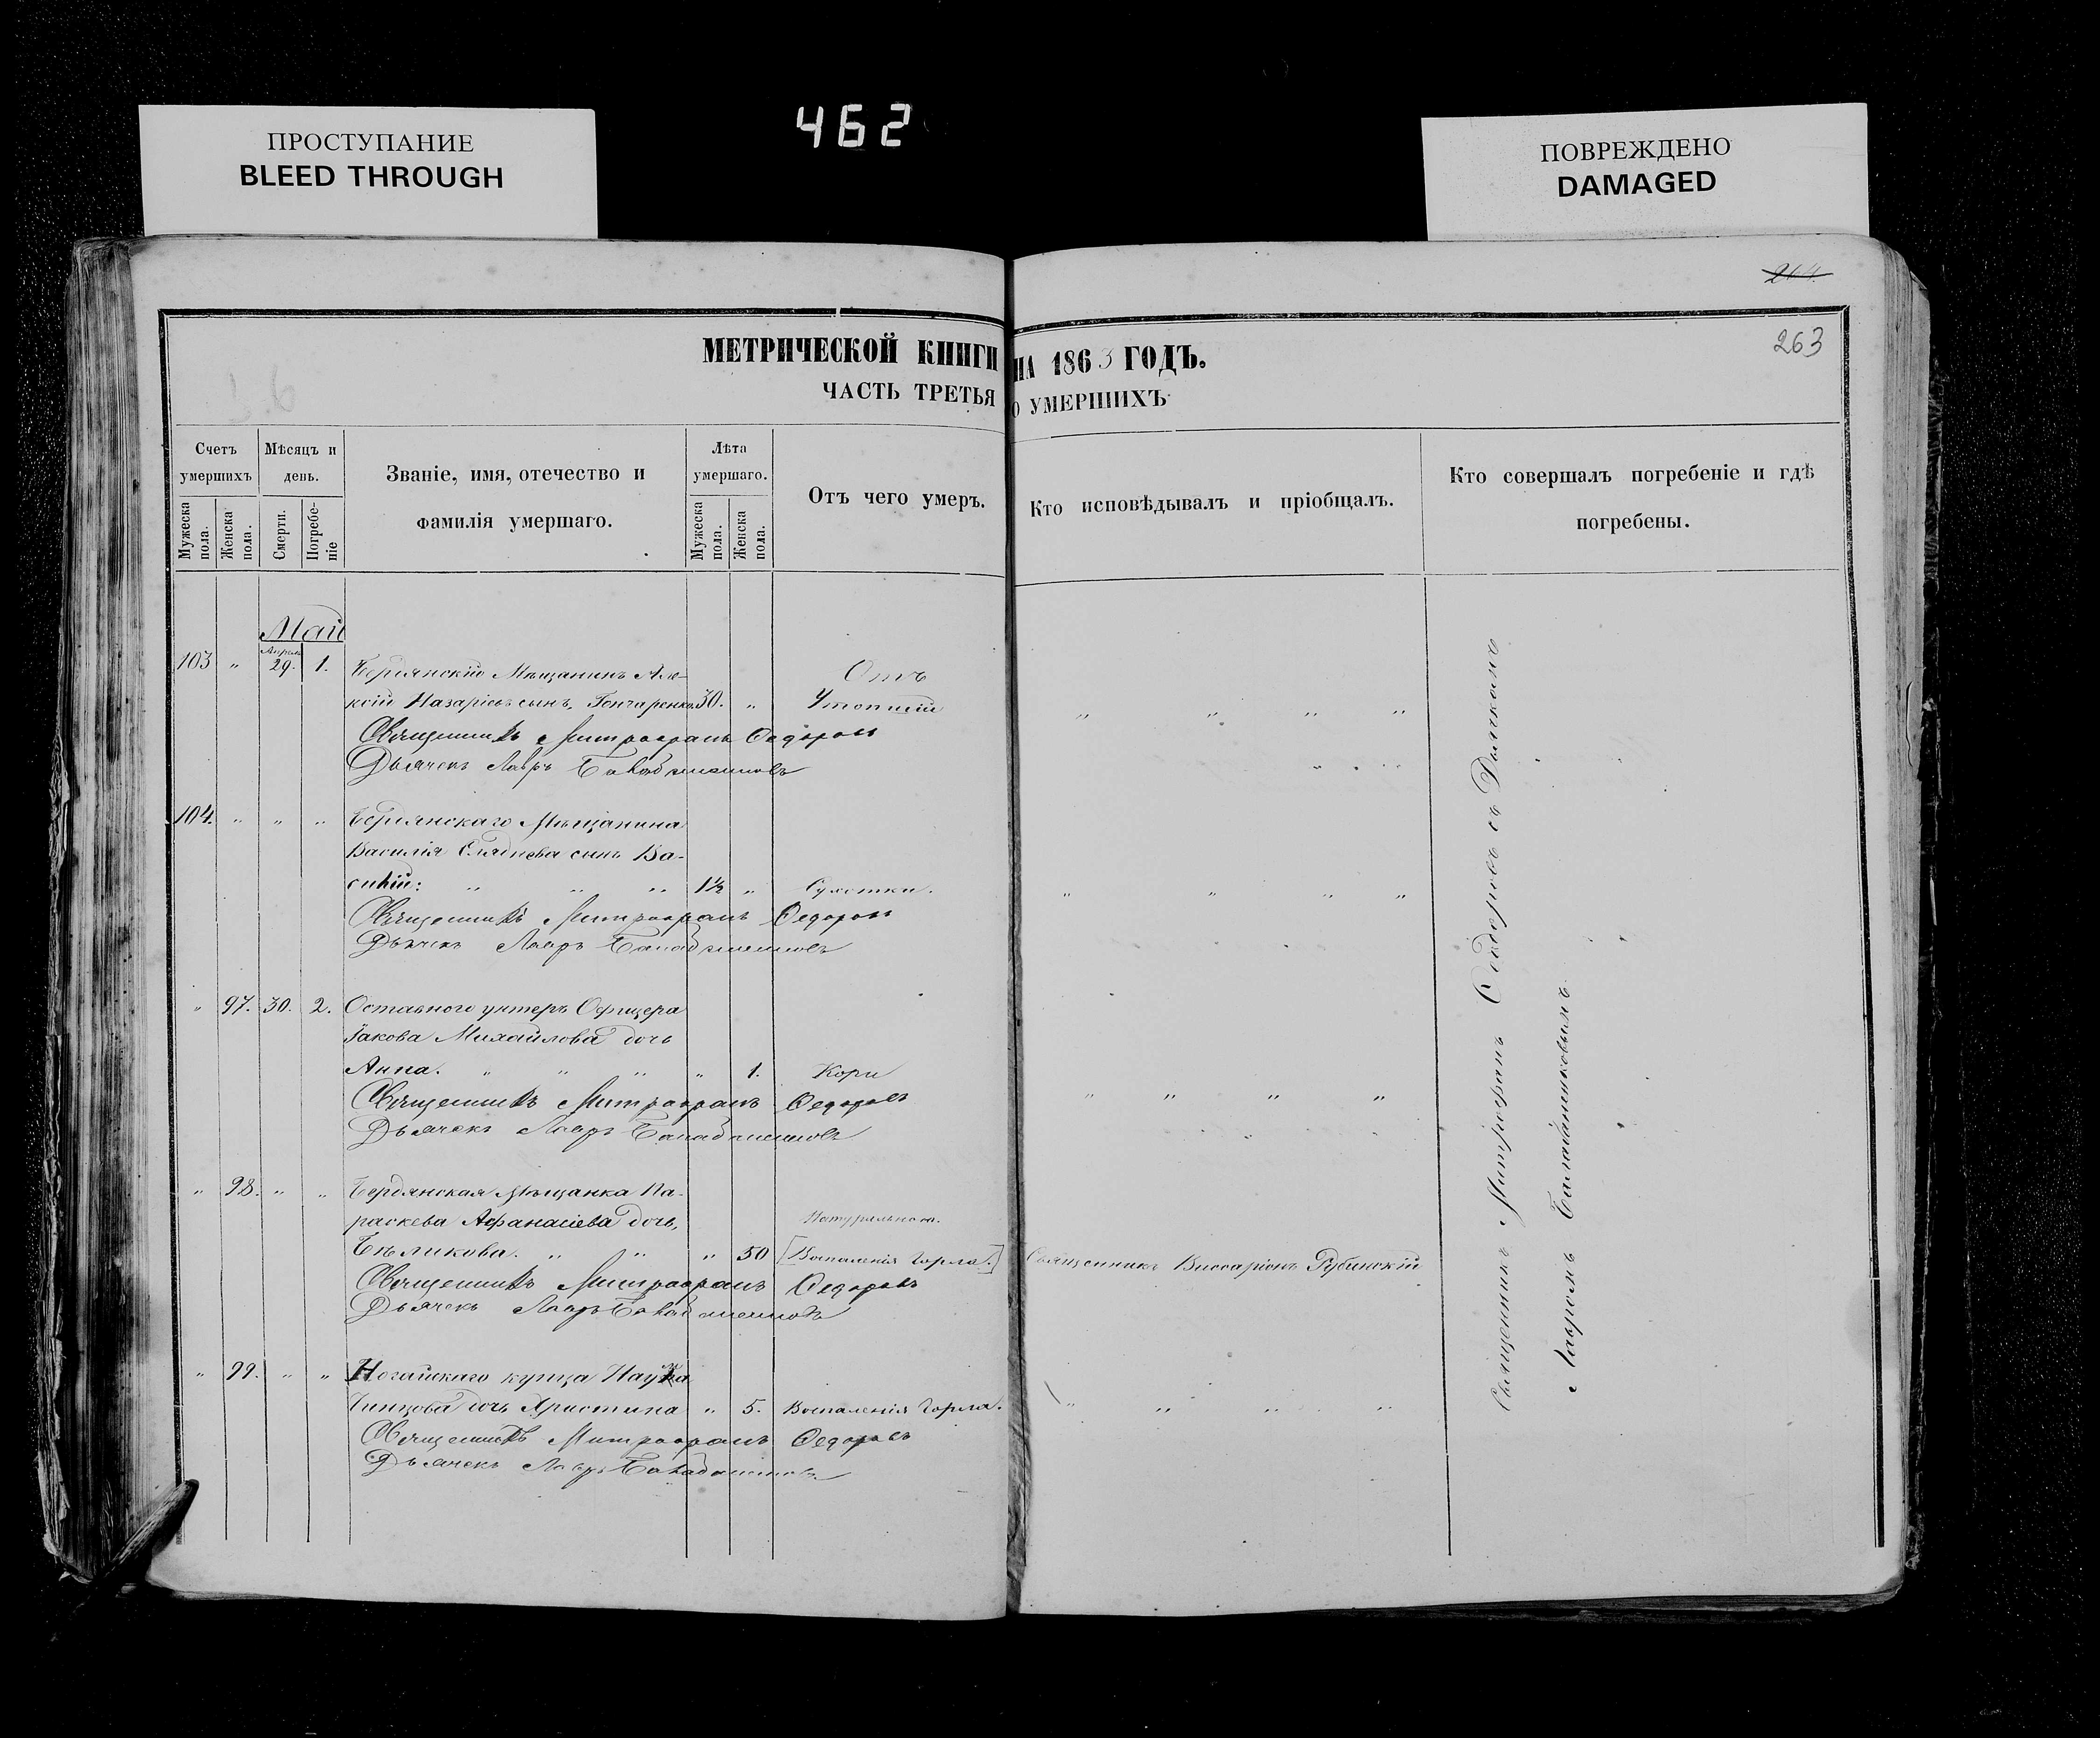 ПРОСТУПАНИЕ
BLEED THROUGH
462
ПОВРЕЖДЕНО
DAMAGED
264.
263
МЕТРИЧЕСКОЙ КНИГИ НА 1863 ГОДЪ.
ЧАСТЬ ТРЕТЬЯ О УМЕРШИХЪ
Счетъ умершихъ
Мужеска пола.
Женска пола.
Мѣсяцъ и день.
Смерти.
Погребеніе
Званіе, имя, отечество и
фамилія умершаго.
Лѣта умершаго.
Мужеска пола.
Женска пола.
Отъ чего умеръ.
Кто исповѣдывалъ и пріобщалъ.
Кто совершалъ погребеніе и гдѣ
погребены.
Май
Апрѣль
103 " 29. 1. Бердянскій Мѣщанинъ Але- Отъ
ксій Назаріевъ сынъ, Гончаренко 30. " " " " "
Священникъ Митрофанъ Федоровъ
Дьячекъ Лавръ
104. " " " Бердянскаго Мѣщанина
Василія сынъ Ва-
силій: " " " 1½ " Сухотки. " " " "
Священникъ Митрофанъ Федоровъ
Дьячекъ Лавръ
" 97. 30. 2. Оставного унтеръ Офицера
Іакова Михайлова дочь
Анна. " " " " 1. Кори " " " "
Священникъ Митрофанъ Федоровъ
Дьячекъ Лавръ
" 98. " " Бердянская Мѣщанка Па-
раскева Афанасіева дочь, Натуральною.
Бѣликова. " " " 50 [Воспаленія горла.] Священникъ Виссаріонъ Рубинскій
Священникъ Митрофанъ Федоровъ
Дьячекъ Лавръ
" 99. " " Ногайскаго купца Наума
дочь Христина " 5. Воспаленія горла. " " " "
Священникъ Митрофанъ Федоровъ
Дьячекъ Лавръ
Священникъ Митрофанъ Федоровъ съ Дьячкомъ
Лавромъ